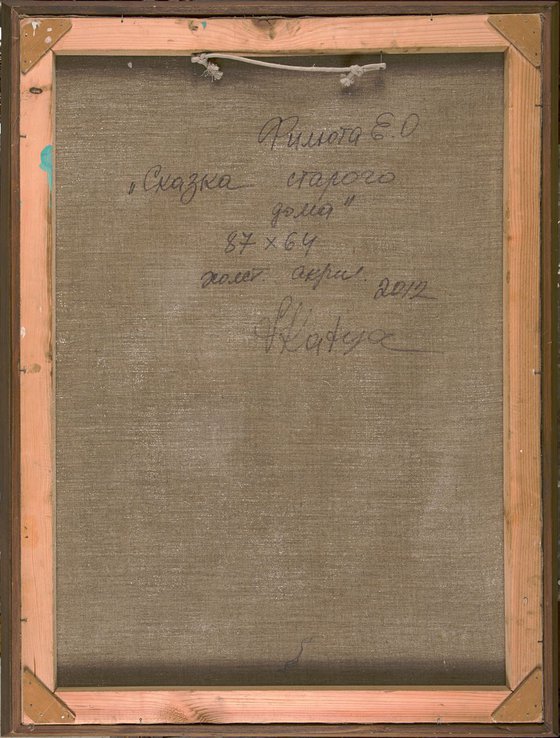 Филюта Е.О
„Сказка старого
дома"
87 x 64
холст. акрил.
2012